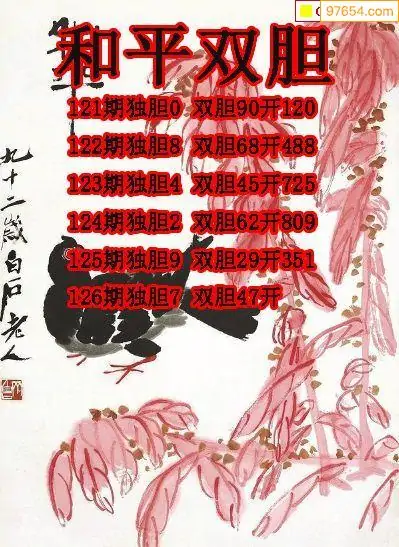 97654.com
和平双胆
121期独胆0 双胆90开120
122期独胆8 双胆68开488
123期独胆4 双胆45开725
124期独胆2 双胆62开809
125期独胆9 双胆29开351
126期独胆7 双胆47开
九十二岁白石老人